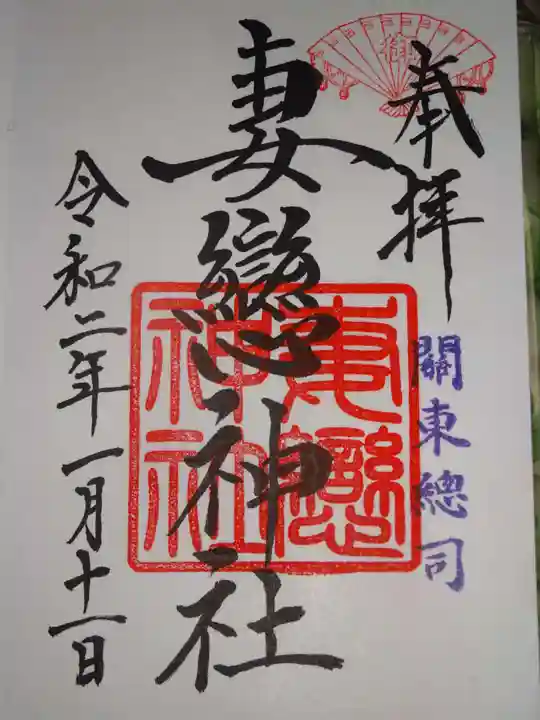 奉拝
關東總司
妻戀神社
妻戀
神社
令和二年一月十一日